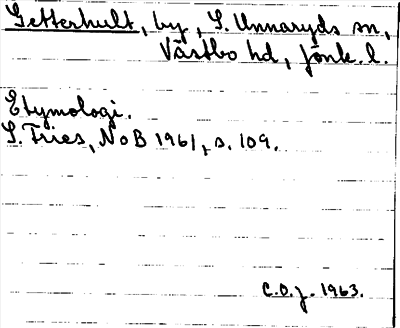 Getterhult, by, S. Unnaryds sn,
Västbo hd, Jönk. l.
Etymologi.
S. Fries, NoB 1961, s. 109.
C.O.J. 1963.